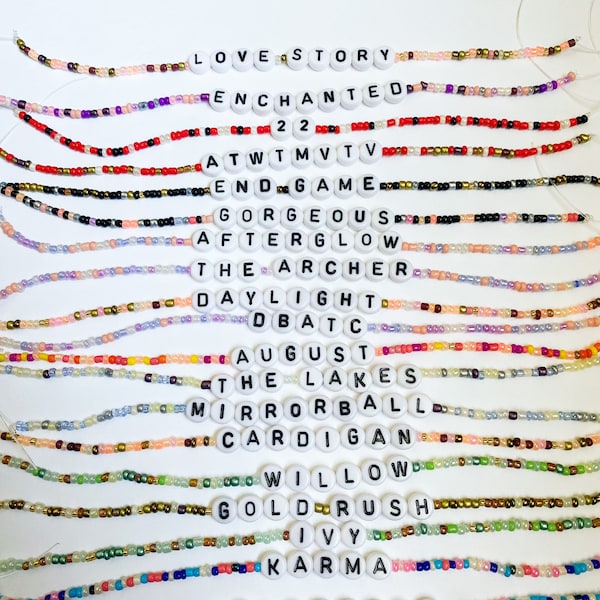 LOVE STORY
ENCHANTED
22
ATWTMVTV
END GAME
GORGEOUS
AFTERGLOW
THE ARCHER
DAYLIGHT
DBATC
AUGUST
THE LAKES
MIRRORBALL
CARDIGAN
WILLOW
GOLD RUSH
IVY
KARMA